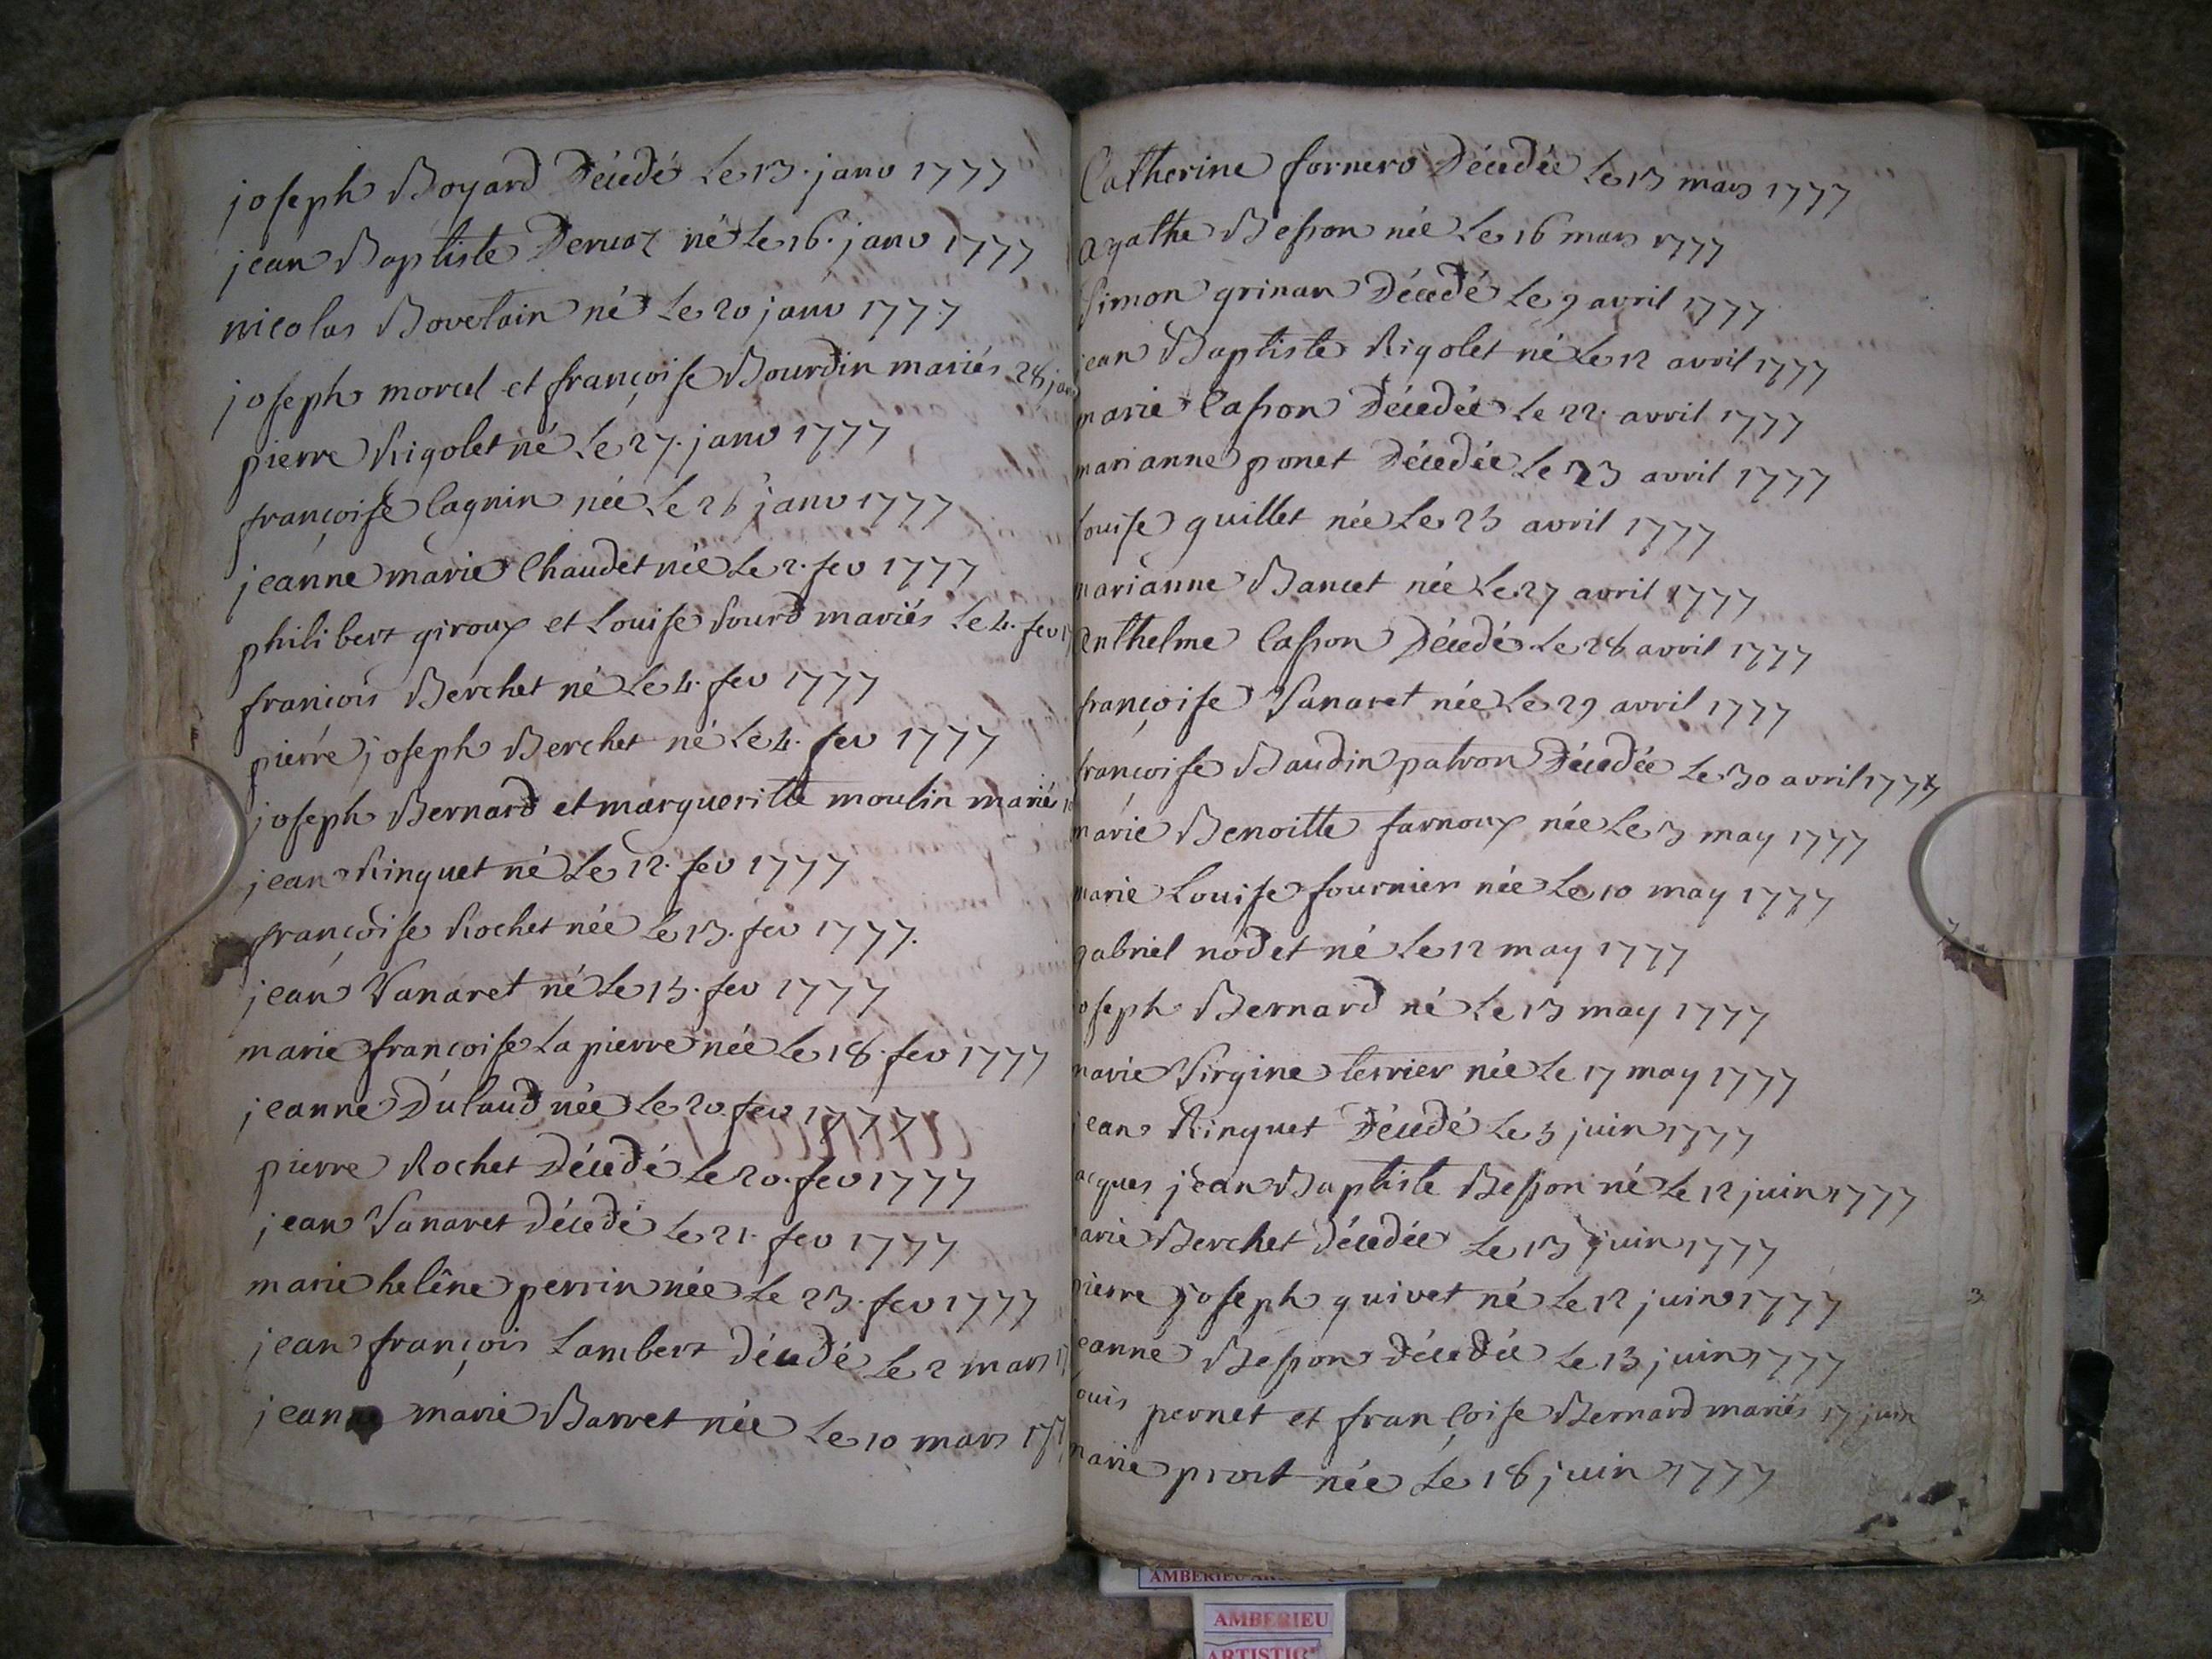 joseph Boyard Décédé Le 13. janv 1777
jean Baptiste Dervoz né Le 16. janv 1777
nicolas Bovetain né Le 20 janv 1777
joseph morcel et françoise Bourdin mariés 28 janv
pierre Rigolet né Le 27. janv 1777
françoise Cagnin née Le 28 janv 1777
jeanne marie Chaudet née Le 2. fev 1777
philibert giroux et Louise Sourd mariés Le 4. fev 17
françois Berchet né Le 4. fev 1777
pierre joseph Berchet né Le 4. fev 1777
joseph Bernard et margueritte moulin mariés
jean Ringuet né Le 12. fev 1777
françoise Rochet née Le 13. fev 1777.
jean Vanaret né Le 15. fev 1777
marie françoise La pierre née Le 18. fev 1777
jeanne Dulaud née Le 20. fev 1777
pierre Rochet Décédé Le 20. fev 1777
jean Vanaret Décédé Le 21. fev 1777
marie helêne perrin née Le 23. fev 1777
jean françois Lambert Décédé Le 2 mars 17
jeanne marie Barret née Le 10 mars 177
Catherine fornero Décédée Le 13 mars 1777
agathe Besson née Le 16 mars 1777
Simon grinan Décédé Le 9 avril 1777
jean Baptiste Rigolet né Le 12 avril 1777
marie Casson Décédée Le 22. avril 1777
marianne ponet Décédée Le 23 avril 1777
Louise guillet née Le 25 avril 1777
marianne Bancet née Le 27 avril 1777
anthelme Casson Décédé Le 28 avril 1777
françoise Vanaret née Le 29 avril 1777
françoise Baudin patron Décédée Le 30 avril 1777
marie Benoitte farnoux née Le 3 may 1777
marie Louise fournier née Le 10 may 1777
gabriel nodet né Le 12 may 1777
joseph Bernard né Le 13 may 1777
marie Virgine terrier née Le 17 may 1777
jean Ringuet Décédé Le 5 juin 1777
acques jean Baptiste Besson né Le 12 juin 1777
arie Berchet Décédée Le 13 juin 1777
pierre joseph guivet né Le 12 juin 1777
eanne Besson Décédée Le 13 juin 1777
ouis pernet et françoise Bernard mariés 17 juin
marie prost née Le 18 juin 1777
3
AMBERIEU
AMBERIEU
ARTISTIQ